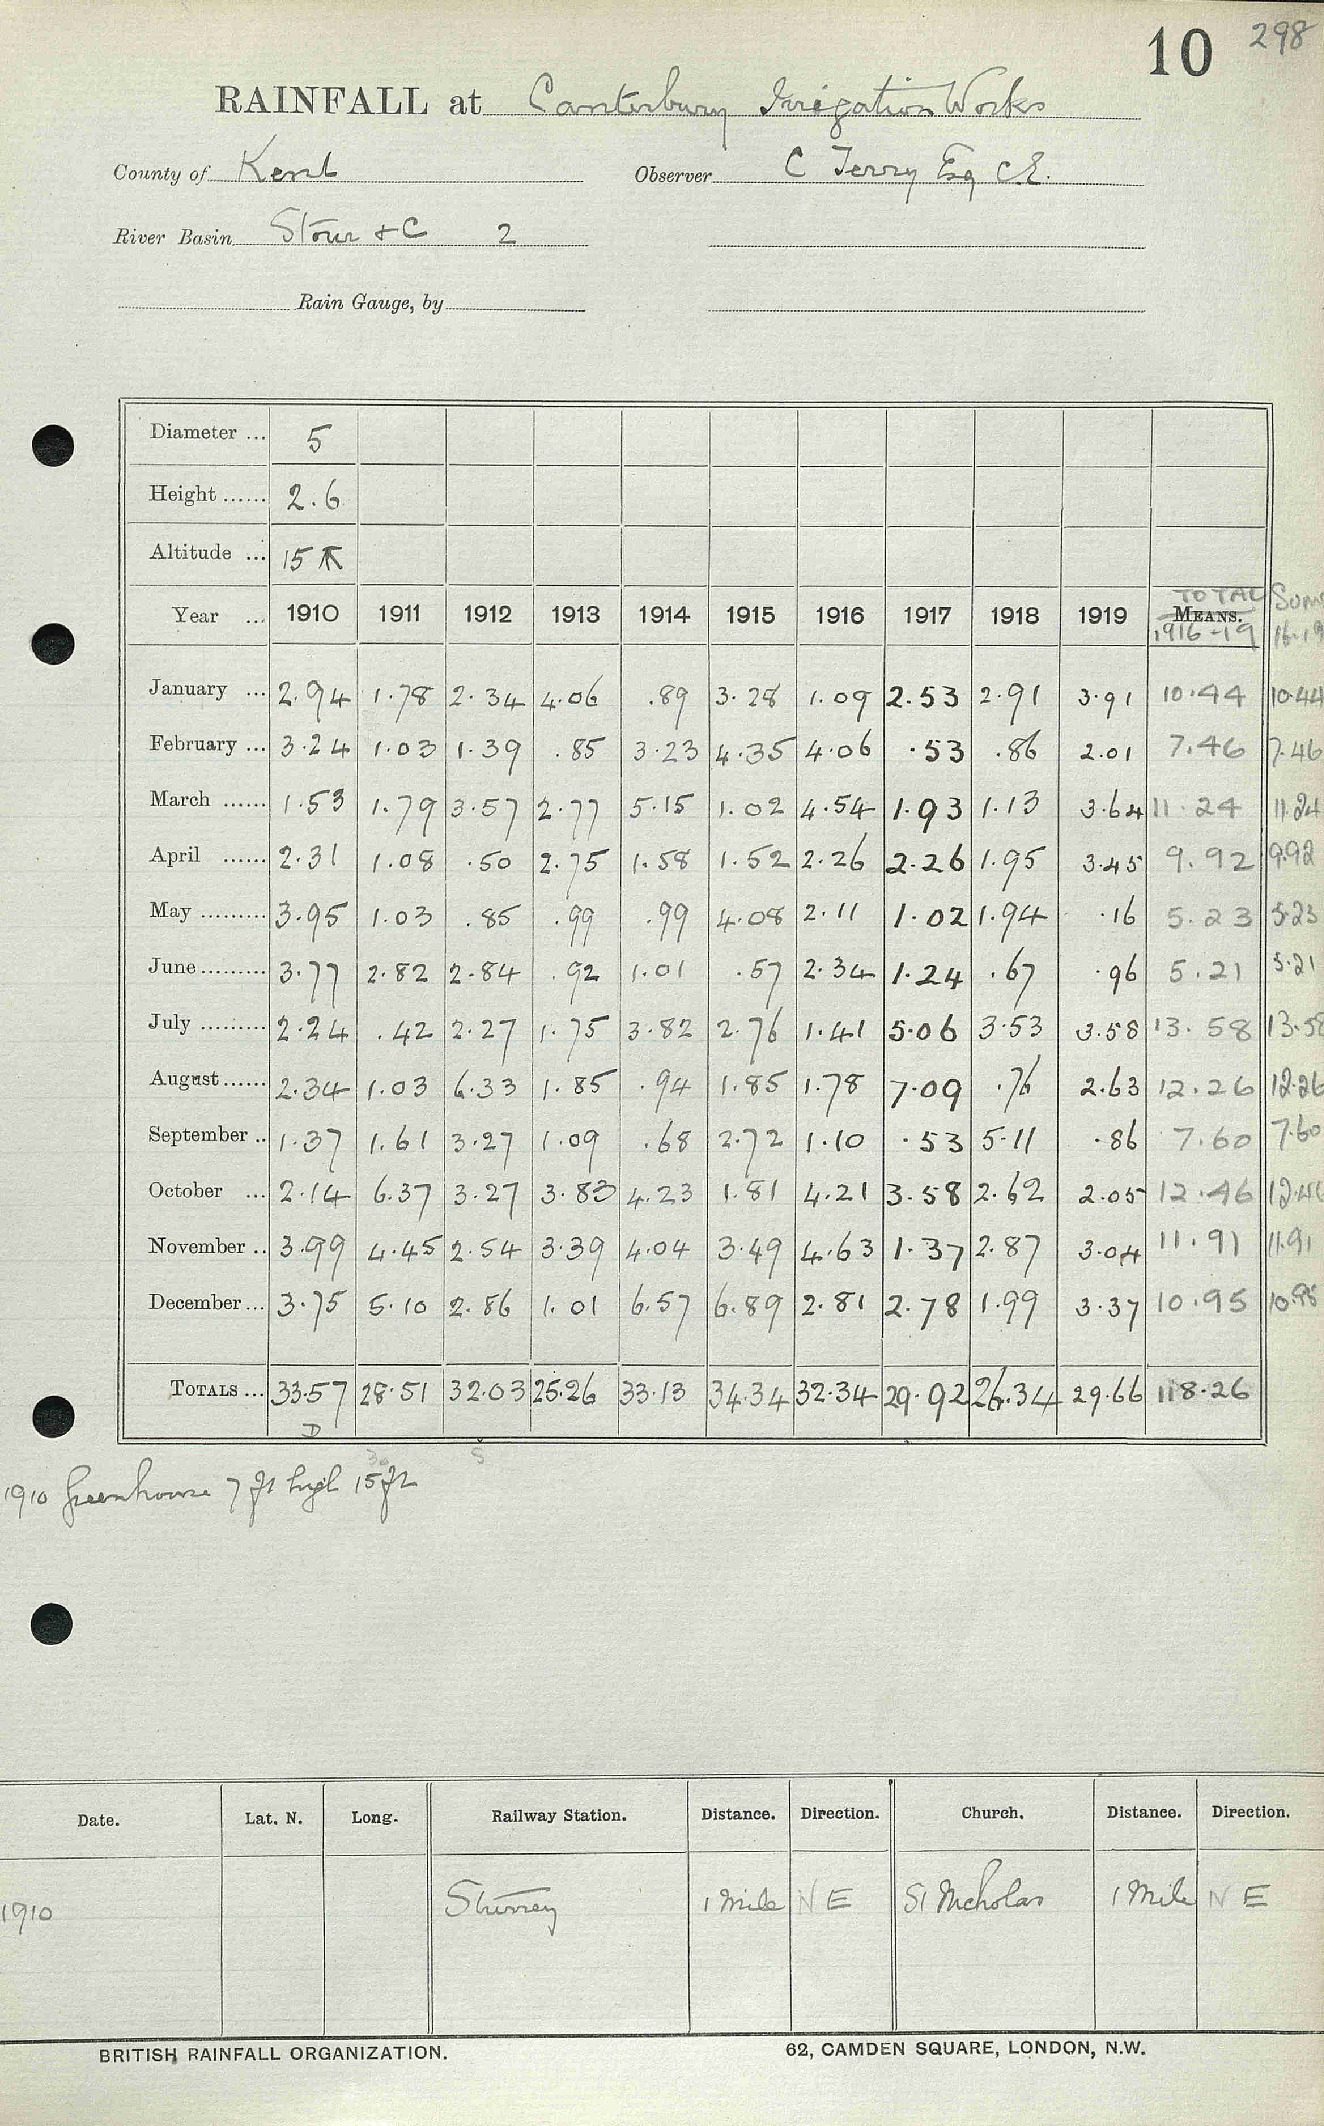 10 298
RAINFALL at Canterbury Irrigation Works
County of Kent Observer C Terry Esq C.E.
River Basin Stour & C 2
Rain Gauge, by
Diameter ... 5
Height ...... 2.6
Altitude ... 15
Year ... 1910 1911 1912 1913 1914 1915 1916 1917 1918 1919 MEANS. TOTAL 1916-19 Sums 16-19
January ... 2.94 1.78 2.34 4.06 .89 3.28 1.09 2.53 2.91 3.91 10.44 10.44
February ... 3.24 1.03 1.39 .85 3.23 4.35 4.06 .53 .86 2.01 7.46 7.46
March ...... 1.53 1.79 3.57 2.77 5.15 1.02 4.54 1.93 1.13 3.64 11.24 11.24
April ...... 2.31 1.08 .50 2.75 1.58 1.52 2.26 2.26 1.95 3.45 9.92 9.92
May ......... 3.95 1.03 .85 .99 .99 4.08 2.11 1.02 1.94 .16 5.23 5.23
June ......... 3.77 2.82 2.84 .92 1.01 .57 2.34 1.24 .67 .96 5.21 5.21
July ......... 2.24 .42 2.27 1.75 3.82 2.76 1.41 5.06 3.53 3.58 13.58 13.58
August ...... 2.34 1.03 6.33 1.85 .94 1.85 1.78 7.09 .76 2.63 12.26 12.26
September .. 1.37 1.61 3.27 1.09 .68 2.72 1.10 .53 5.11 .86 7.60 7.60
October ... 2.14 6.37 3.27 3.83 4.23 1.81 4.21 3.58 2.62 2.05 12.46 12.46
November .. 3.99 4.45 2.54 3.39 4.04 3.49 4.63 1.37 2.87 3.04 11.91 11.91
December ... 3.75 5.10 2.86 1.01 6.57 6.89 2.81 2.78 1.99 3.37 10.95 10.95
TOTALS ... 33.57 28.51 32.03 25.26 33.13 34.34 32.34 29.92 26.34 29.66 118.26
D
1910 Greenhouse 7 ft high 15 ft
Date. Lat. N. Long. Railway Station. Distance. Direction. Church. Distance. Direction.
1910 Sturrey 1 Mile N E St Nicholas 1 Mile N E
BRITISH RAINFALL ORGANIZATION. 62, CAMDEN SQUARE, LONDON, N.W.